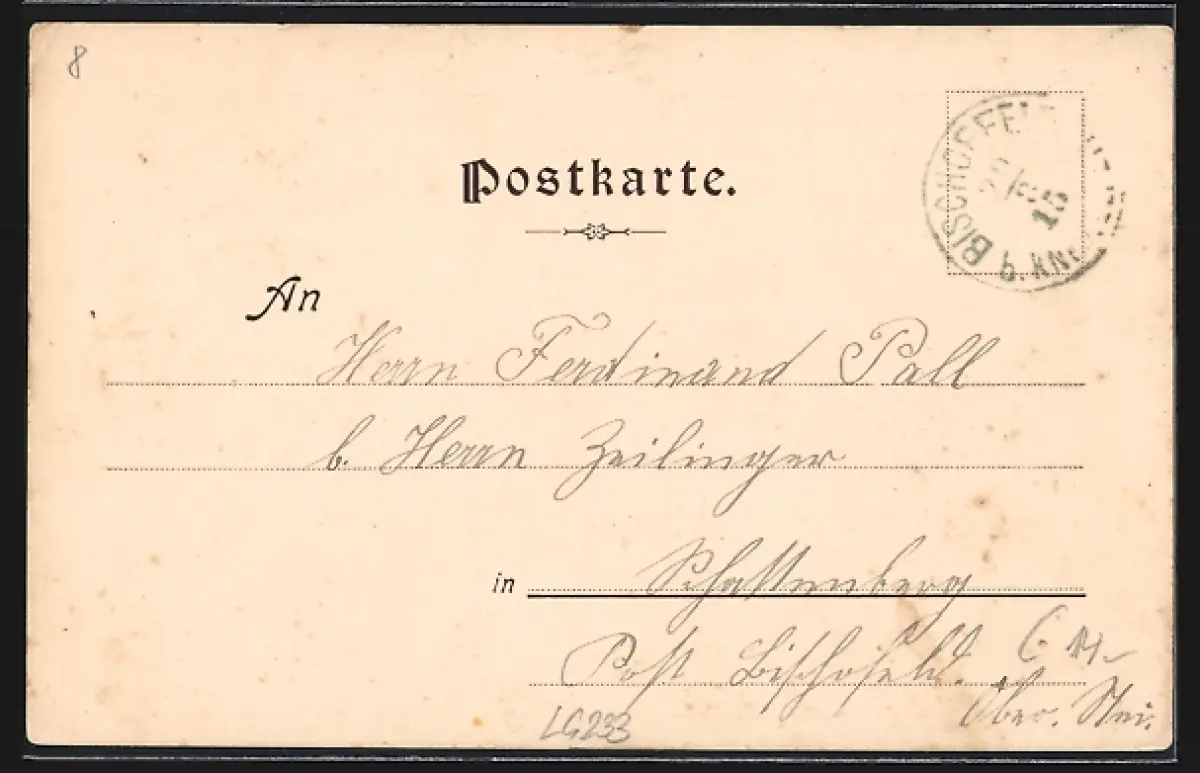 8
Postkarte.
BISCHOFFEL
15
b. KN
An
Herrn Ferdinand Pall
b. Herrn Zeilinger
in Schattenberg
Post Bischofeld.
Ober. Stei.
LG233